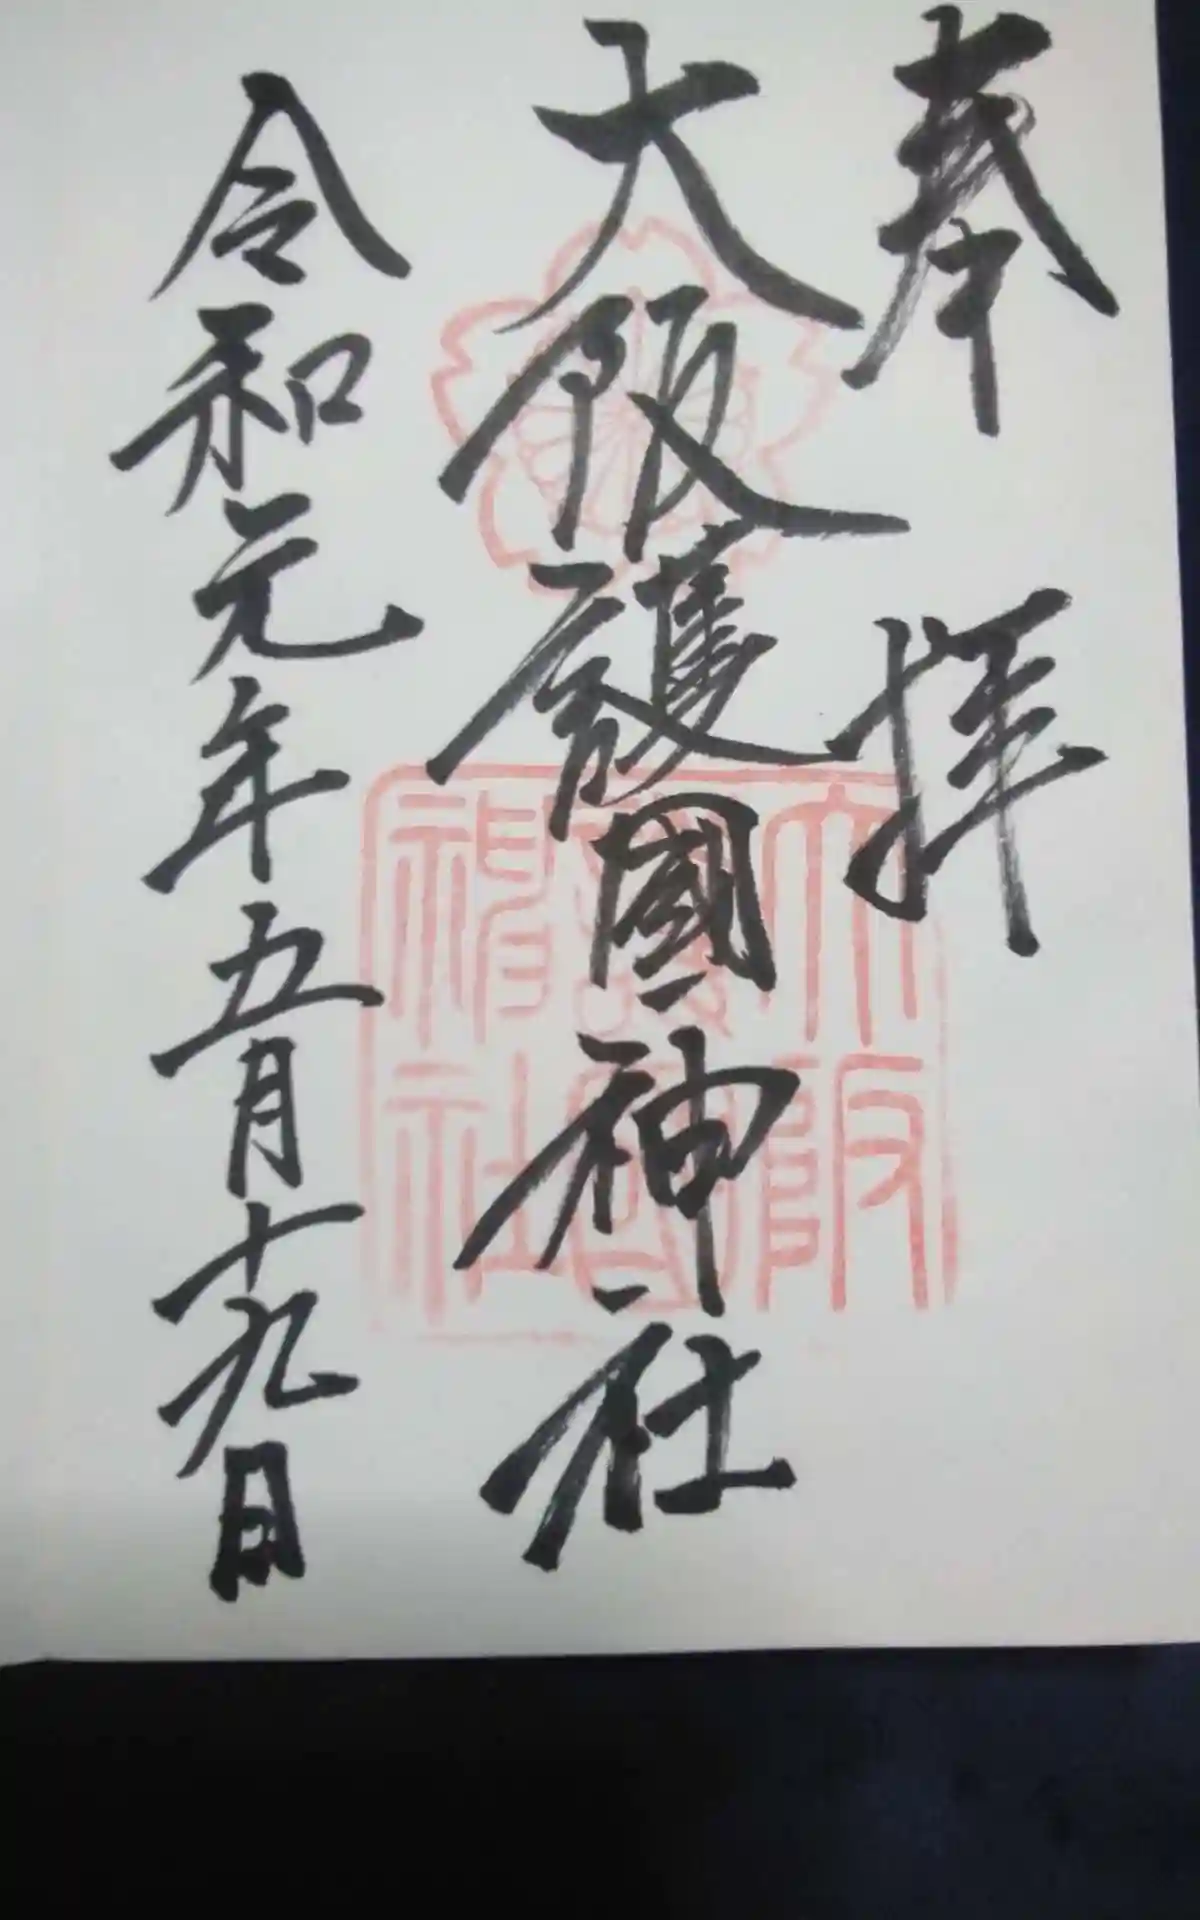 奉拝
大阪護國神社
令和元年五月十九日
大阪
護國
神社